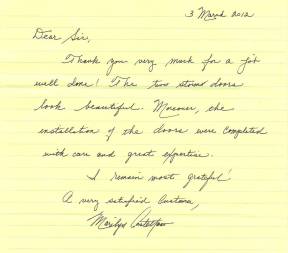 3 March 2012
Dear Sir,
Thank you very much for a job
well done! The two storm doors
look beautiful. Moreover, the
installation of the doors were completed
with care and great expertise.
I remain most grateful!
A very satisfied Customer,
Marilyn